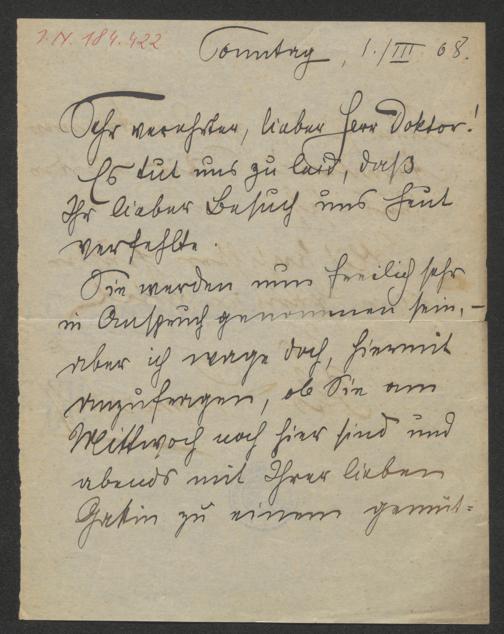 I.N. 184.422
Sonntag, 1./III. 08.
Sehr verehrter, lieber Herr Doktor!
Es tut uns zu leid, daß
Ihr lieber Besuch uns heut
verfehlte.
Sie werden nun freilich sehr
in Anspruch genommen sein, –
aber ich wage doch, hiermit
anzufragen, ob Sie am
Mittwoch noch hier sind und
abends mit Ihrer lieben
Gattin zu einem gemüt=